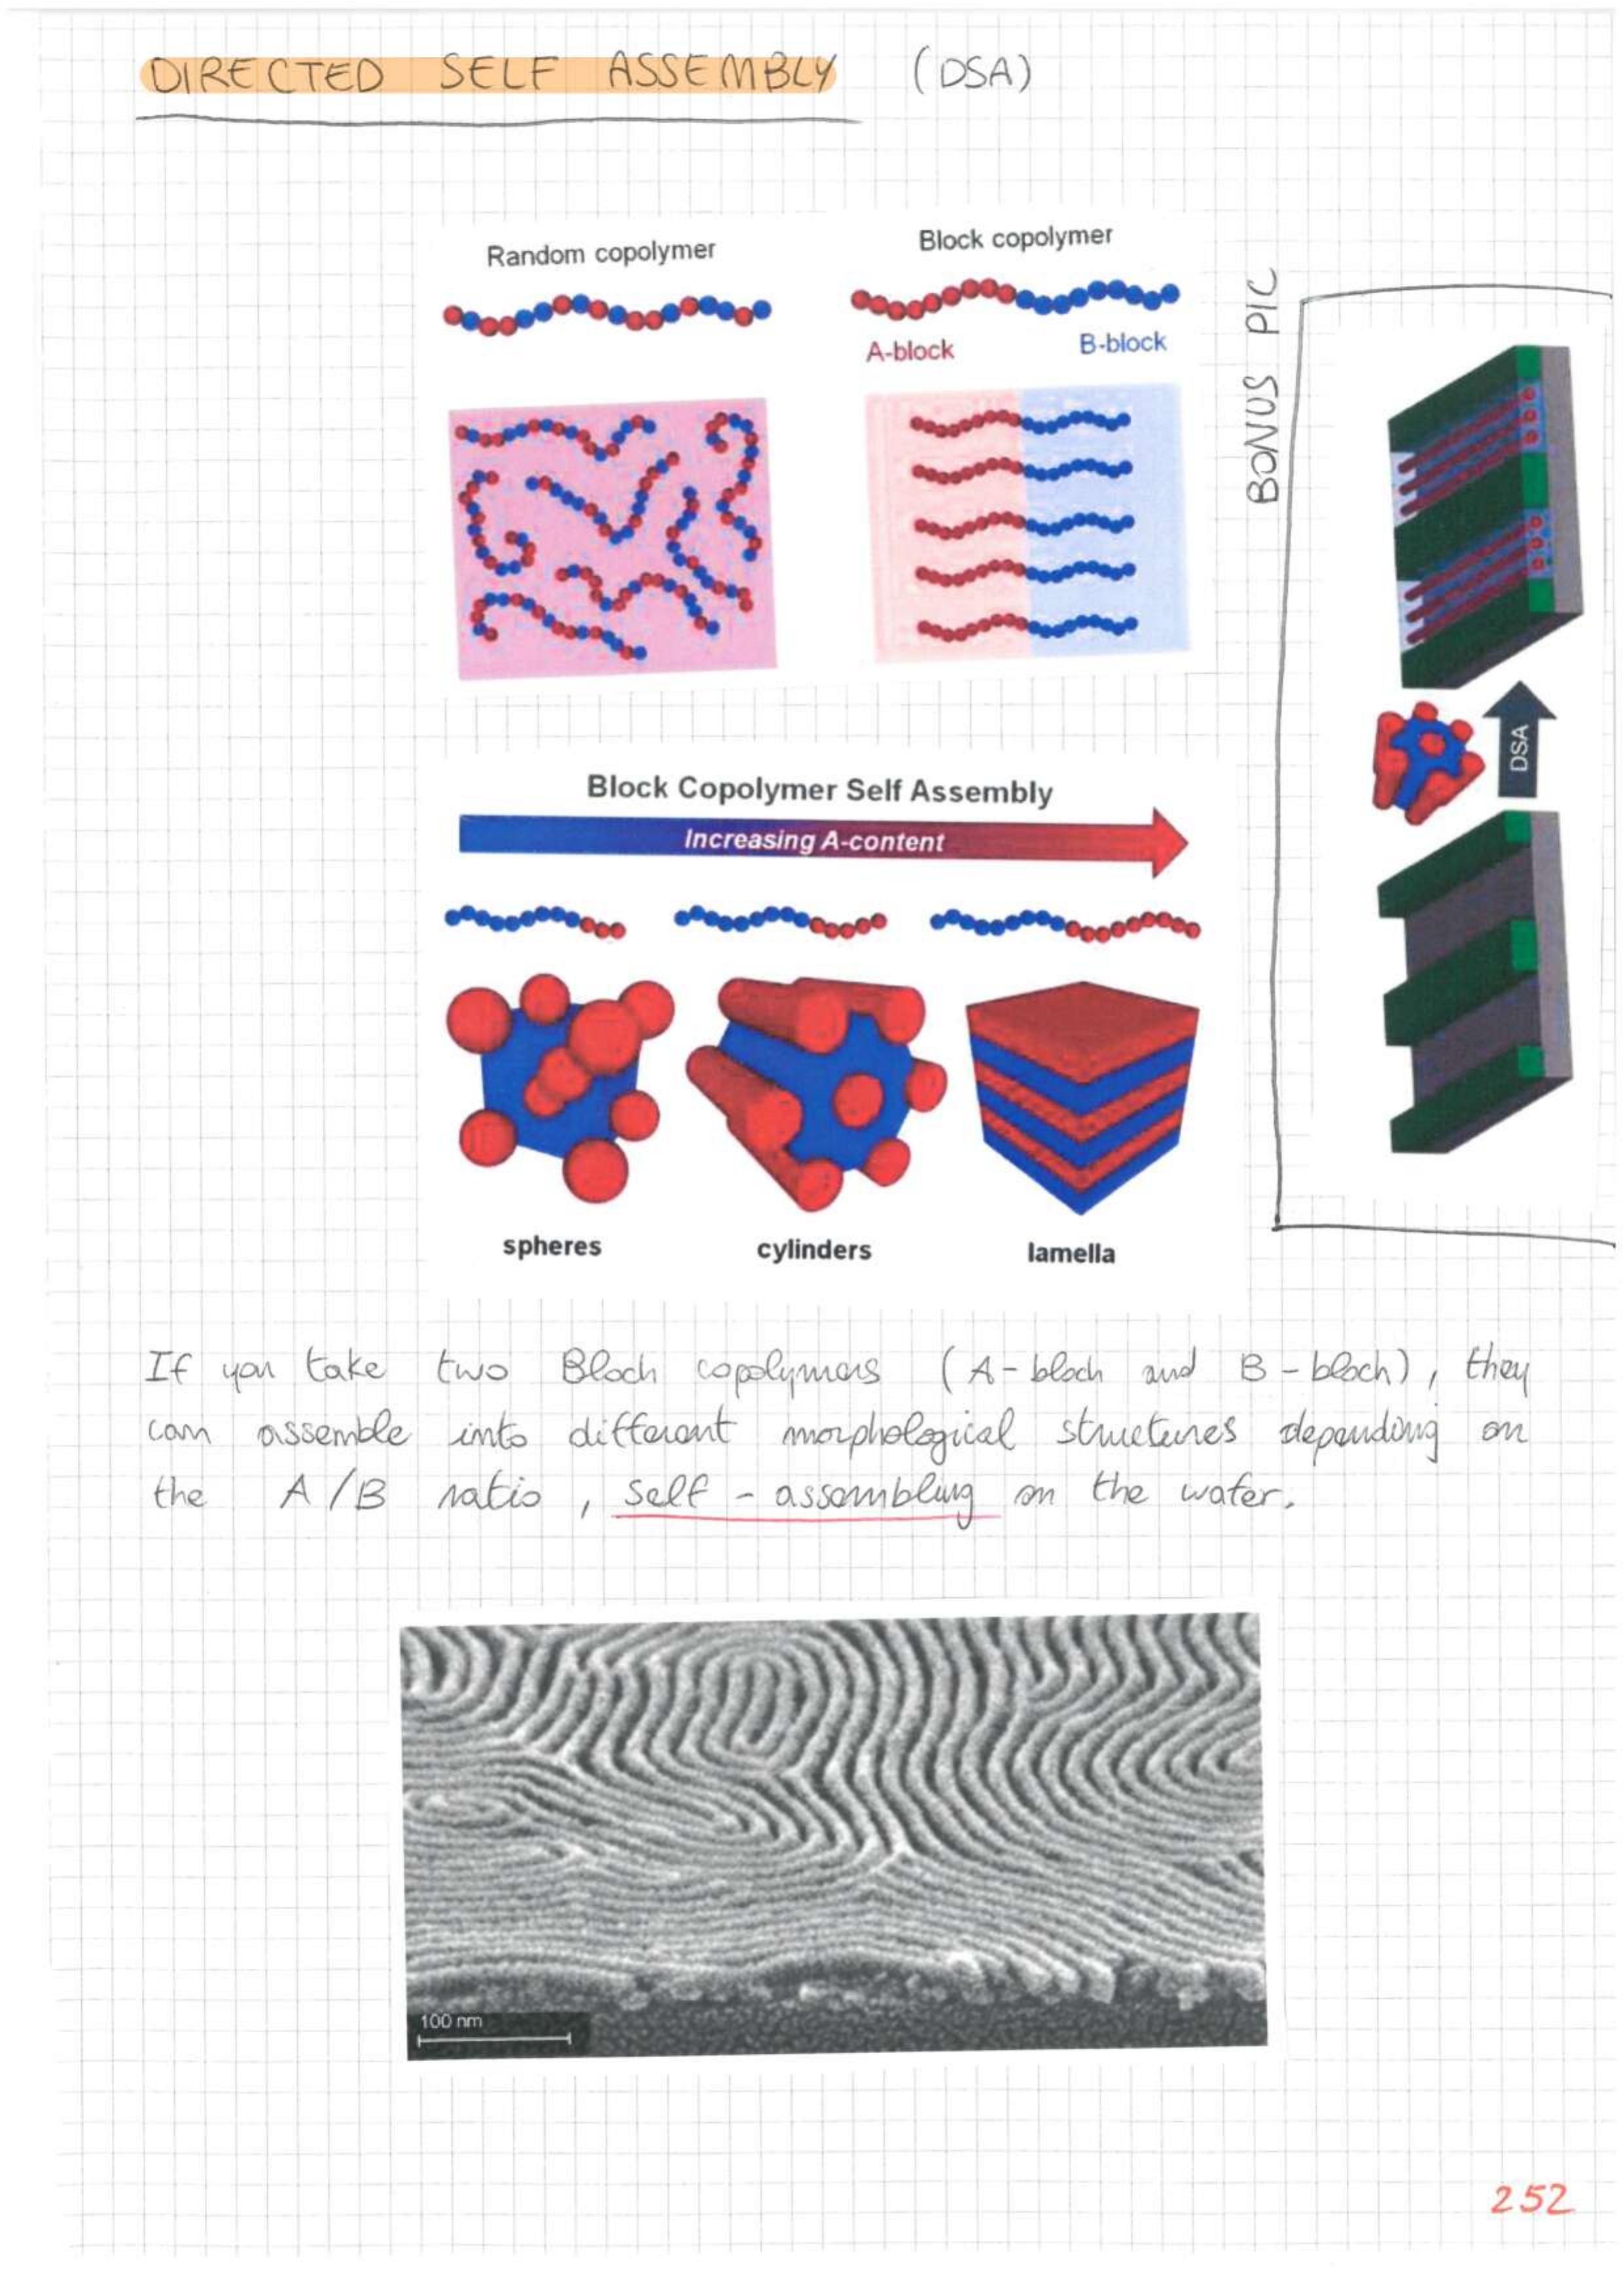 DIRECTED SELF ASSEMBLY (DSA)
Random copolymer
Block copolymer
A-block
B-block
BONUS PIC
DSA
Block Copolymer Self Assembly
Increasing A-content
spheres
cylinders
lamella
If you take two Bloch copolymers (A-bloch and B-bloch), they
can assemble into different morphological structures depending on
the A/B ratio, self-assembling on the water.
100 nm
252